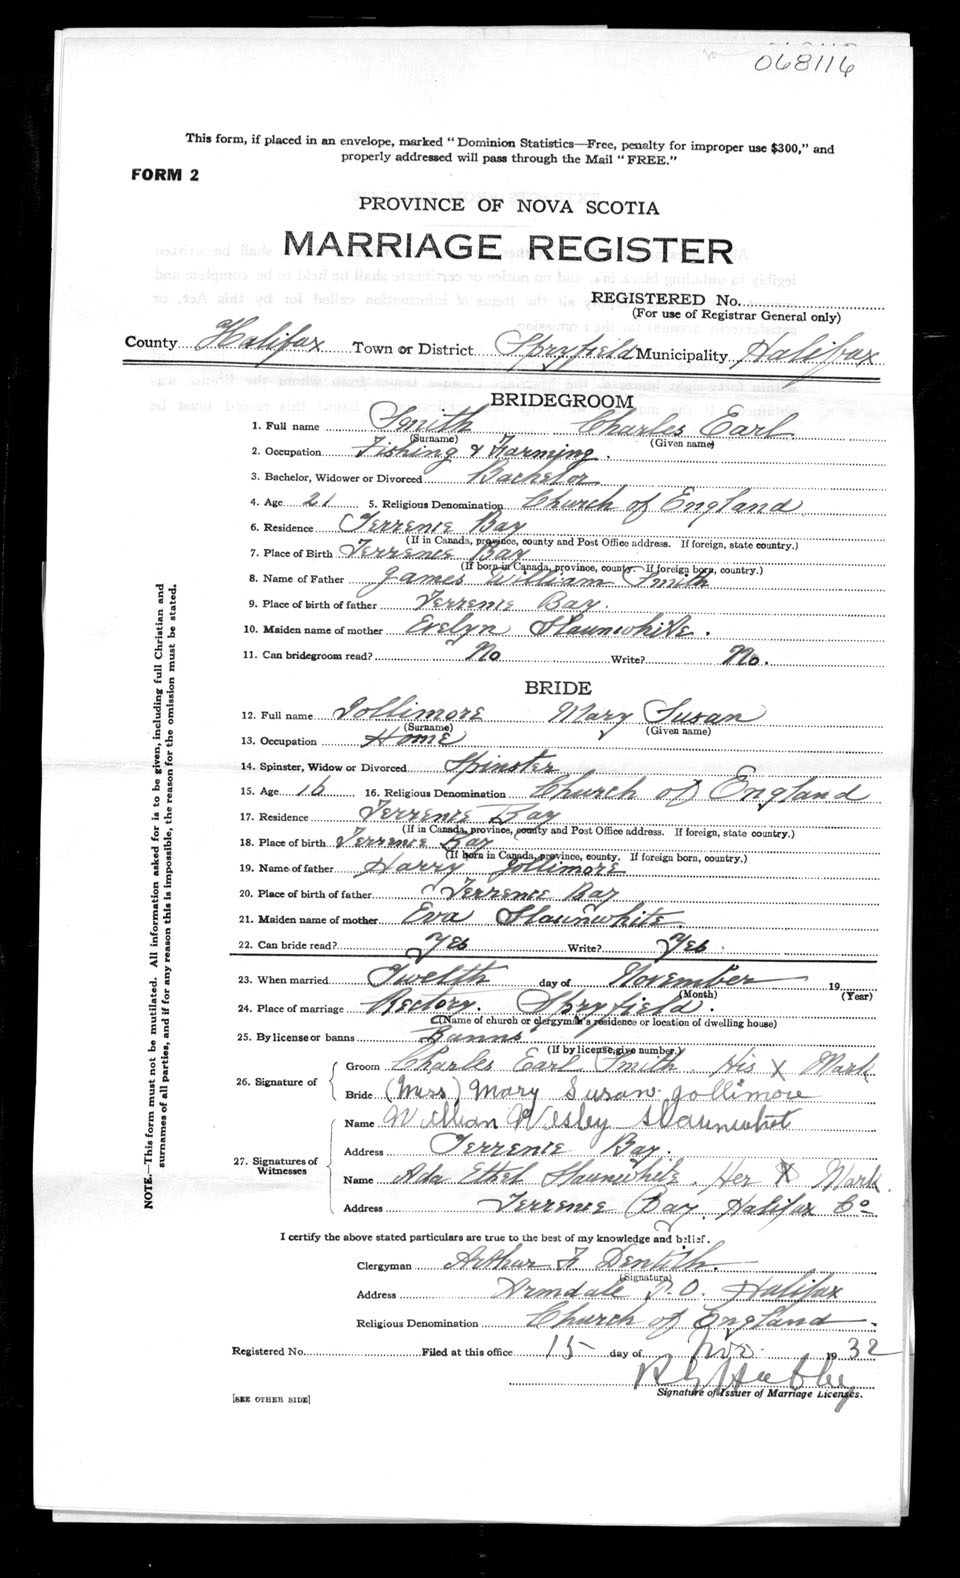 068116
This form, if placed in an envelope, marked "Dominion Statistics—Free, penalty for improper use $300," and
properly addressed will pass through the Mail "FREE."
FORM 2
PROVINCE OF NOVA SCOTIA
MARRIAGE REGISTER
REGISTERED No.
(For use of Registrar General only)
County Halifax Town or District Spryfield Municipality Halifax
BRIDEGROOM
1. Full name Smith Charles Earl
(Surname) (Given name)
2. Occupation Fishing & Farming.
3. Bachelor, Widower or Divorced Bachelor
4. Age 21 5. Religious Denomination Church of England
6. Residence Terrence Bay
(If in Canada, province, county and Post Office address. If foreign, state country.)
7. Place of Birth Terrence Bay
(If born in Canada, province, county. If foreign born, country.)
8. Name of Father James William Smith
9. Place of birth of father Terrence Bay.
10. Maiden name of mother Evelyn Slaunwhite.
11. Can bridegroom read? No Write? No.
BRIDE
12. Full name Jollimore Mary Susan
(Surname) (Given name)
13. Occupation Home
14. Spinster, Widow or Divorced Spinster
15. Age 16 16. Religious Denomination Church of England
17. Residence Terrence Bay
(If in Canada, province, county and Post Office address. If foreign, state country.)
18. Place of birth Terrence Bay
(If born in Canada, province, county. If foreign born, country.)
19. Name of father Harry Jollimore
20. Place of birth of father Terrence Bay
21. Maiden name of mother Eva Slaunwhite.
22. Can bride read? Yes Write? Yes.
23. When married Twelth day of November 19
(Month) (Year)
24. Place of marriage Rectory. Spryfield.
(Name of church or clergyman's residence or location of dwelling house)
25. By license or banns Banns
(If by license, give number.)
26. Signature of
Groom Charles Earl Smith His X Mark
Bride (Miss) Mary Susan Jollimore
27. Signatures of Witnesses
Name Willian Wesley Slaunwhit
Address Terrence Bay.
Name Ada Ethel Slaunwhite. Her X Mark.
Address Terrence Bay. Halifax Co
I certify the above stated particulars are true to the best of my knowledge and belief.
Clergyman Arthur F Dentith.
(Signature)
Address Armdale P.O. Halifax
Religious Denomination Church of England.
Registered No. Filed at this office 15 day of Nov. 19 32
R G Hubley
Signature of Issuer of Marriage Licenses.
[SEE OTHER SIDE]
NOTE.—This form must not be mutilated. All information asked for is to be given, including full Christian and
surnames of all parties, and if for any reason this is impossible, the reason for the omission must be stated.